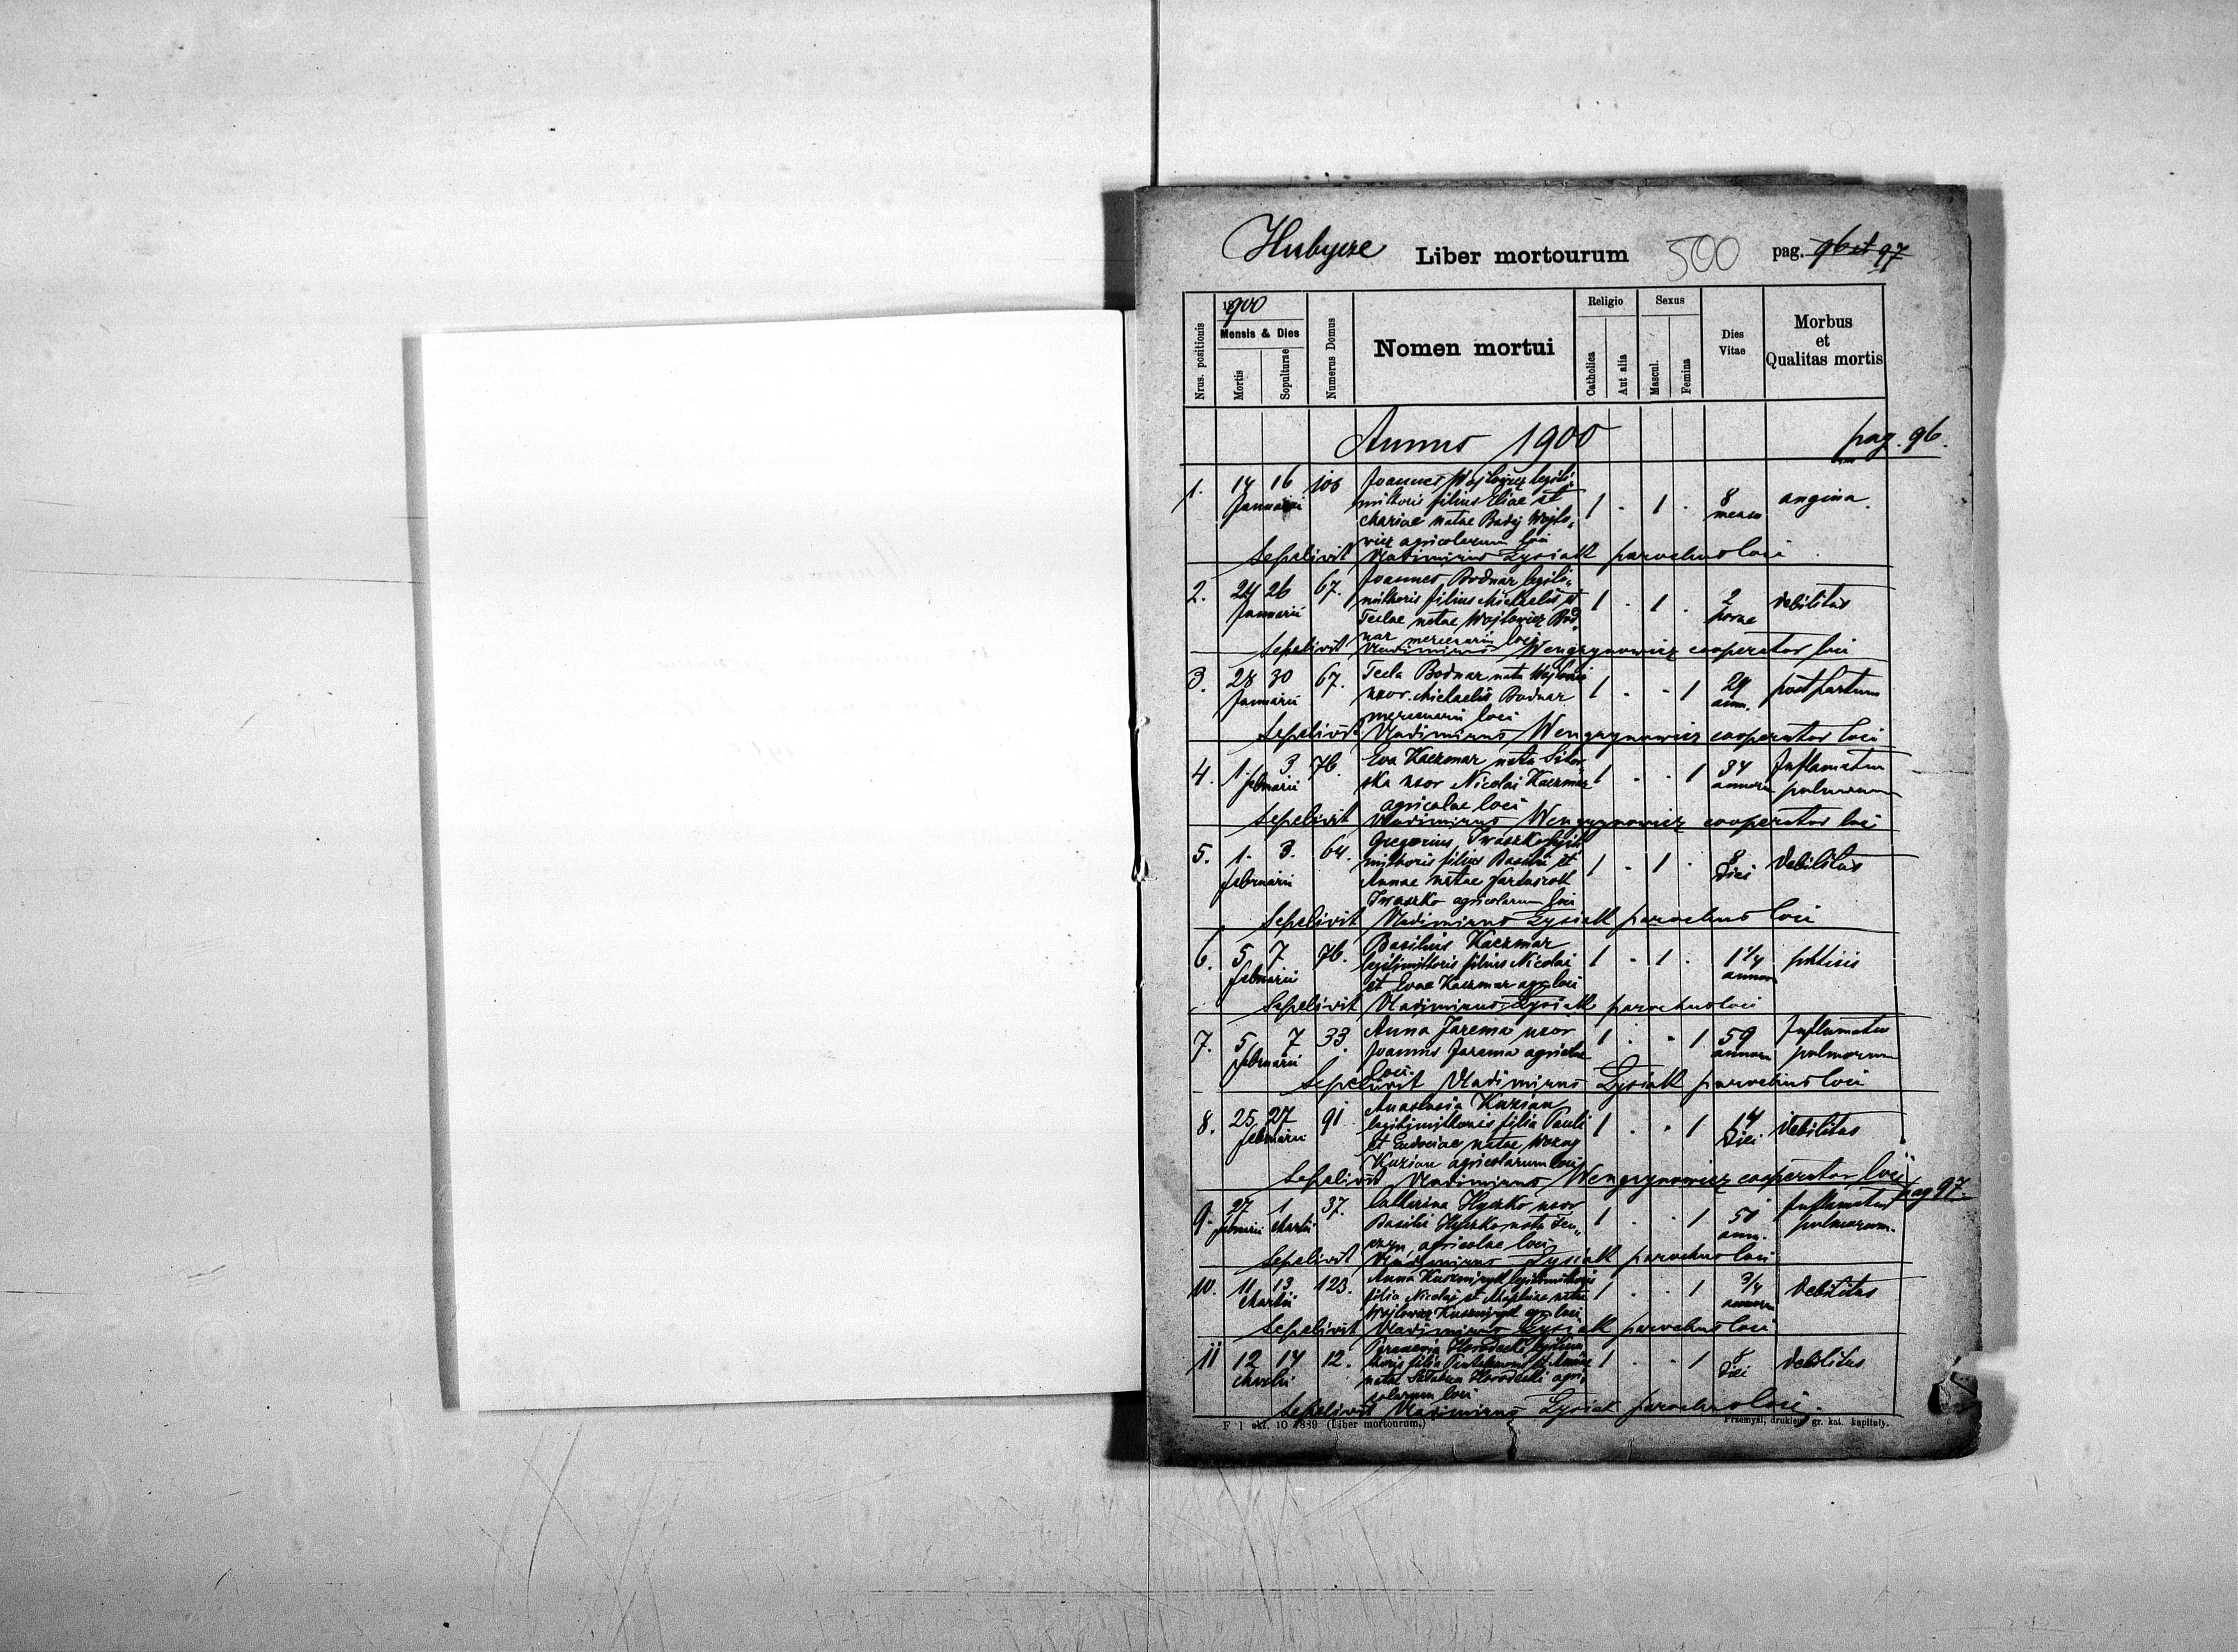 Hubycze Liber mortourum 500 pag. 96 et 97
1900
Nrus. positionis
Mensis & Dies
Mortis
Sepulturae
Numerus Domus
Nomen mortui
Religio
Catholica
Aut alia
Sexus
Mascul.
Femina
Dies Vitae
Morbus et Qualitas mortis
Annus 1900 pag. 96.
1. 14 16 Januarii 108
Joannes Wojtowicz legiti,
mithoris filius Eliae et
Mariae natae Wojto,
wicz agricolarum loci
1 . 1 . 8 mens angina.
Sepelivit Vladimirus Lysiak parochus loci
2. 24 26 Januarii 67.
Joannes Bodnar legiti,
mithoris filius Michaelis et
Teclae natae Wojtowicz Bod,
nar mercenarii loci
1 . 1 . 2 horae debilitas
Sepelivit Vladimirus Wengrynowicz cooperator loci
3. 28 30 Januarii 67.
Tecla Bodnar nata Wojtowicz
uxor Michaelis Bodnar
mercenarii loci
1 . . 1 29 ann. post partum
Sepelivit Vladimirus Wengrynowicz cooperator loci
4. 1. 3 februarii 76.
Eva Kaczmar nata
uxor Nicolai Kaczmar
agricolae loci
1 . . 1 34 annorum Inflamatio pulmorum
Sepelivit Vladimirus Wengrynowicz cooperator loci
5. 1. 3. februarii 64.
Gregorius Iwaszko legiti
mithoris filius Basilii et
Annae natae
Iwaszko agricolarum loci
1 . 1 . 8 diei debilitas
Sepelivit Vladimirus Lysiak parochus loci
6. 5 7 februarii 76.
Basilius Kaczmar
legitimithoris filius Nicolai
et Evae Kaczmar agr loci
1 . 1 . 1 1/4 annor phtisis
Sepelivit Vladimirus Lysiak parochus loci
7. 5 7 februarii 33.
Anna Jarema uxor
Joannis Jarema agricolae
loci.
1 . . 1 59 annorum Inflamatio pulmorum
Sepelivit Vladimirus Lysiak parochus loci
8. 25 27 februarii 91
Anastasia Kuzian
legitimithoris filia Pauli
et Eudociae natae Wozny
Kuzian agricolarum loci
1 . . 1 14 diei debilitas
Sepelivit Vladimirus Wengrynowicz cooperator loci
pag 97.
9. 27 februarii 1 Martii 37.
Catharina Hyszko uxor
Basilii Hyszko nata
agricolae loci
1 . . 1 50 ann. Inflamatio pulmorum.
Sepelivit Vladimirus Lysiak parochus loci
10. 11 13 Martii 123.
Anna legitimithoris
filia Nicolai et natae
Wojtowicz agr loci
1 . . 1 3/4 annorum debilitas
Sepelivit Vladimirus Lysiak parochus loci
11 12 14 Martii 12.
Horodecki legitimi
thoris filia Pantaleimonis et Annae
natae Horodecki agri,
colarum loci
1 . . 1 8 diei debilitas
Sepelivit Vladimirus Lysiak parochus loci.
F 1 skł. 10 1889 (Liber mortourum.) Przemyśl, drukiem gr. kat. kapituły.